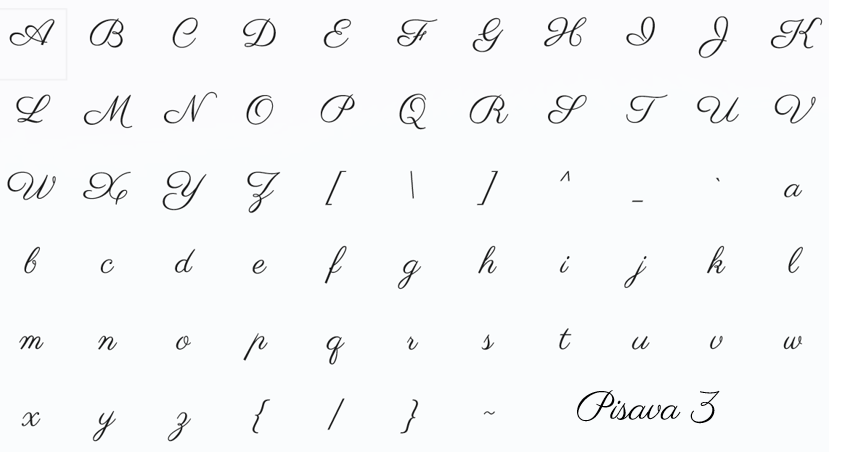 A B C D E F G H I J K
L M N O P Q R S T U V
W X Y Z [ \ ] ^ _ ` a
b c d e f g h i j k l
m n o p q r s t u v w
x y z { / } ~ Pisava 3